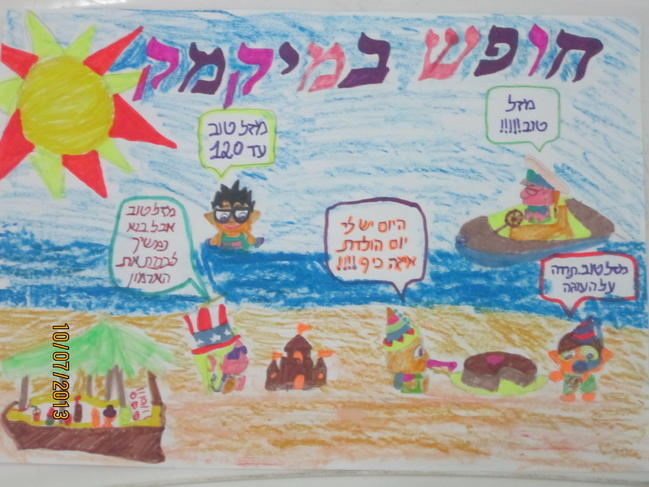 חופש במיקמק
מזל
טוב!!!!!
מזל טוב
עד 120
מזל טוב
אבל בוא
נמשיך
לבנות את
הארמון
היום יש לי
יום הולדת
איזה כיף !!!!
מזל טוב תודה
על העוגה
10/07/2013